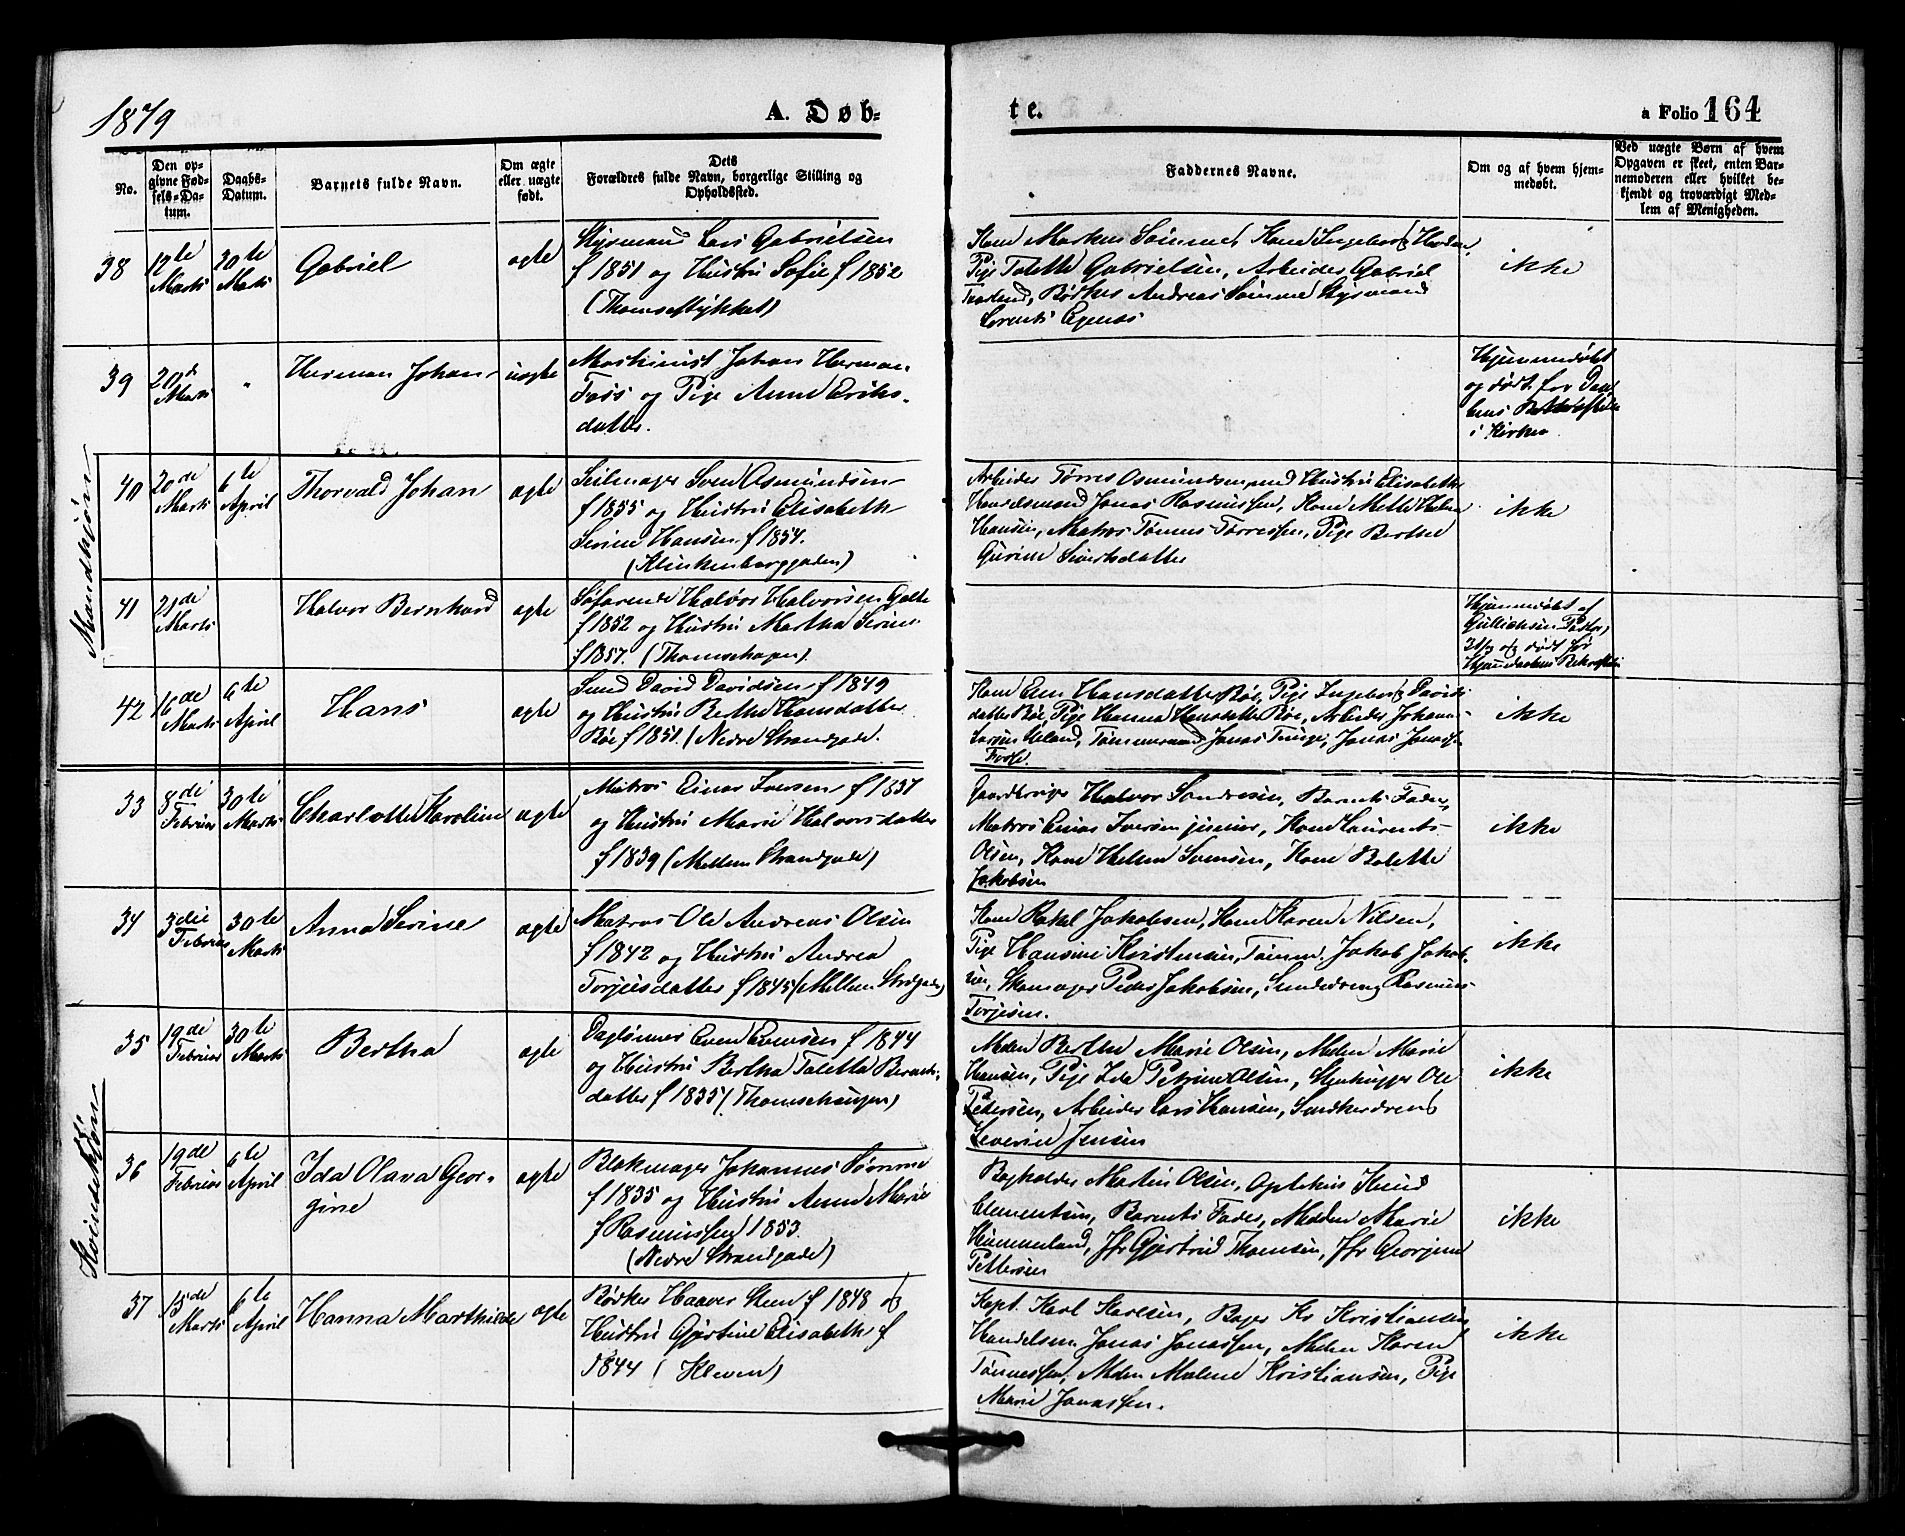 1879
A. Døb-
te.
a Folio 164
No.
Den op-
givne Fød-
sels-Da-
tum.
Daabs-
Datum.
Barnets fulde Navn.
Om ægte
eller uægte
født.
Dets
Forældres fulde Navn, borgerlige Stilling og
Opholdssted.
Faddernes Navne.
Om og af hvem hjem-
medøbt.
Ved uægte Børn af hvem
Opgaven er skeet, enten Bar-
nemoderen eller hvilket be-
kjendt og troværdigt Med-
lem af Menigheden.
Mandkjøn
38
12te
Marts
30te
Marts
Gabriel
ægte
Styrmand Lars Gabrielsen
f 1851 og Hustru Sofie f 1852
(Thomsestykket)
Kone Markus Sømme, Kone Ingeborg
Pige Talette Gabrielsen, Arbeider Gabriel
Bødker Andreas Sømme Styrmand
Lorents Egenæs
ikke
39
20de
Marts
"
Herman Johan
uægte
Maskinist Johan Herman
Foss og Pige Anne Eriks-
datter.
Hjemmedøbt
og død før Daa-
bens Bekræftelse
i Kirken
40
20de
Marts
6te
April
Thorvald Johan
ægte
Seilmager Sven Osmundsen
f 1855 og Hustru Elisabeth
Serine Hansen f 1854.
(Klinkenberggaden)
Arbeider Tørres Osmundsen med Hustru Elisabeth
Handelsmand Jonas Rasmussen, Kone Mette Helene
Hansen, Matros Tønnes Tørressen, Pige Berthe
Gurine Sivertsdatter
ikke
41
21de
Marts
Halvor Bernhard
ægte
Søfarende Halvor Halvorsen
f 1852 og Hustru Martha Serine
f 1857. (Thomsehagen)
Hjemmedøbt af
Gullichsen Pastor,
og død før
Hjemmedaabens Bekræftelse
42
16de
Marts
6te
April
Hans
ægte
Smed David Davidsen f 1849
og Hustru Berthe Hansdatter
Bøe f 1851. (Nedre Strandgade.
Kone Hansdatter Bøe, Pige Ingeborg Davids-
datter Bøe, Pige Hanna Hansdatter Bøe, Arbeider Johan
Larsen Tømmermand Jonas Jonas
ikke
Kvindekjøn
33
8de
Februar
30te
Marts
Charlotte Karoline
ægte
Matros Einar Iversen f 1837
og Hustru Marie Halvorsdatter
f 1839 (Mellem Strandgade)
Gaardbruger Halvor Sondresen, Barnets Fader,
Matros Einar Iversen junior, Kone Laurents
Olsen, Kone Helene Svensen, Kone Bolette
Jakobsen
ikke
34
3die
Februar
30te
Marts
Anna Serine
ægte
Matros Ole Andreas Olsen
f 1842 og Hustru Andrea
Torjeisdatter f 1845 (Mellem Strdgade)
Kone Rakel Jakobsen, Kone Karen Nilsen,
Pige Hansine Kristensen, Tømm. Jakob Jakob-
sen, Skomager Peder Jakobsen, Rasmus
Torjesen.
ikke
35
19de
Februar
30te
Marts
Bertha
ægte
Daglønner Even Evensen f 1844
og Hustru Bertha Taletta Bernts-
datter f 1835 (Thomsehaugen)
Mdm Berthe Marie Olsen, Mdm Marie
Hansen, Pige Ida Petrine Olsen, Stenhugger Ole
Pedersen, Arbeider Lars Hansen, Snedkerdreng
Severin Jensen
ikke
36
19de
Februar
6te
April
Ida Olava Geor-
gine
ægte
Blokmager Johannes Sømme
f 1835 og Hustru Anne Marie
f Rasmussen 1853.
(Nedre Strandgade)
Bogholder Martin Olsen, Knud
Clementsen, Barnets Fader, Mdm Marie
Hummerland, Jfr Gjertrud Thomsen, Jfr Georgine
Pettersen
ikke
37
15de
Marts
6te
April
Hanna Marthilde
ægte
Bødker Haaver Steen f 1848 og
Hustru Gjertine Elisabeth f
1844 (Kleven)
Kapt. Karl Karlsen, Bager Kr Kristiansen,
Handelsm. Jonas Jonassen, Mdm Karen
Tønnessen, Mdm Malene Kristiansen, Pige
Marie Jonassen.
ikke